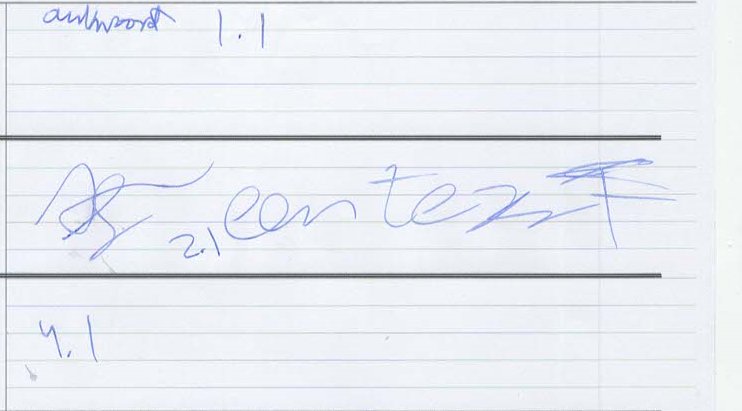 antwoord 1.1
2.1 een
4.1